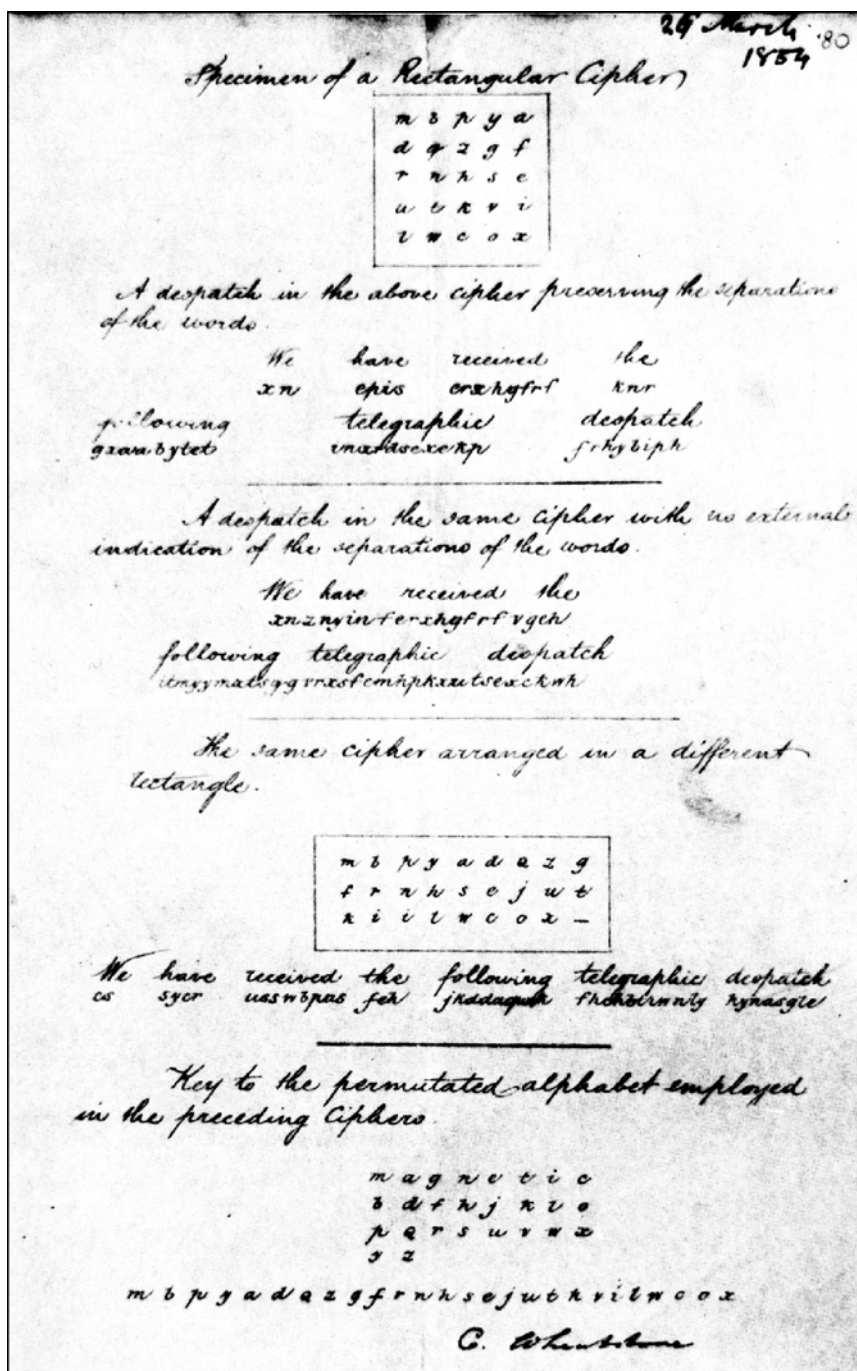 29 March
1854
80
Specimen of a Rectangular Cipher
m b p y a
d q z g f
r n h s e
u t k v i
l w c o x
A despatch in the above cipher preserving the separations
of the words.
We have received the
xn epis knr
following telegraphic despatch
A despatch in the same cipher with no external
indication of the separations of the words.
We have received the
following telegraphic despatch
The same cipher arranged in a different
rectangle.
m b p y a d q z g
f r n h s e j u t
k v i l w c o x –
We have received the following telegraphic despatch
cs sycr feh
Key to the permutated alphabet employed
in the preceding Ciphers.
m a g n e t i c
b d f h j k l o
p q r s u v w x
y z
m b p y a d q z g f r n h s e j u t k v i l w c o x
C. Wheatstone